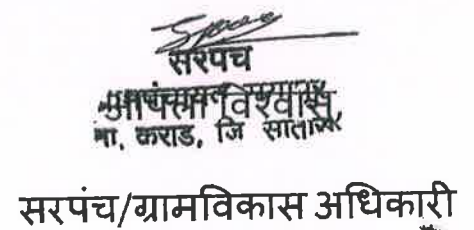 सरपंच
आपला विश्वासू,
ता. कराड, जि सातारा
सरपंच/ग्रामविकास अधिकारी